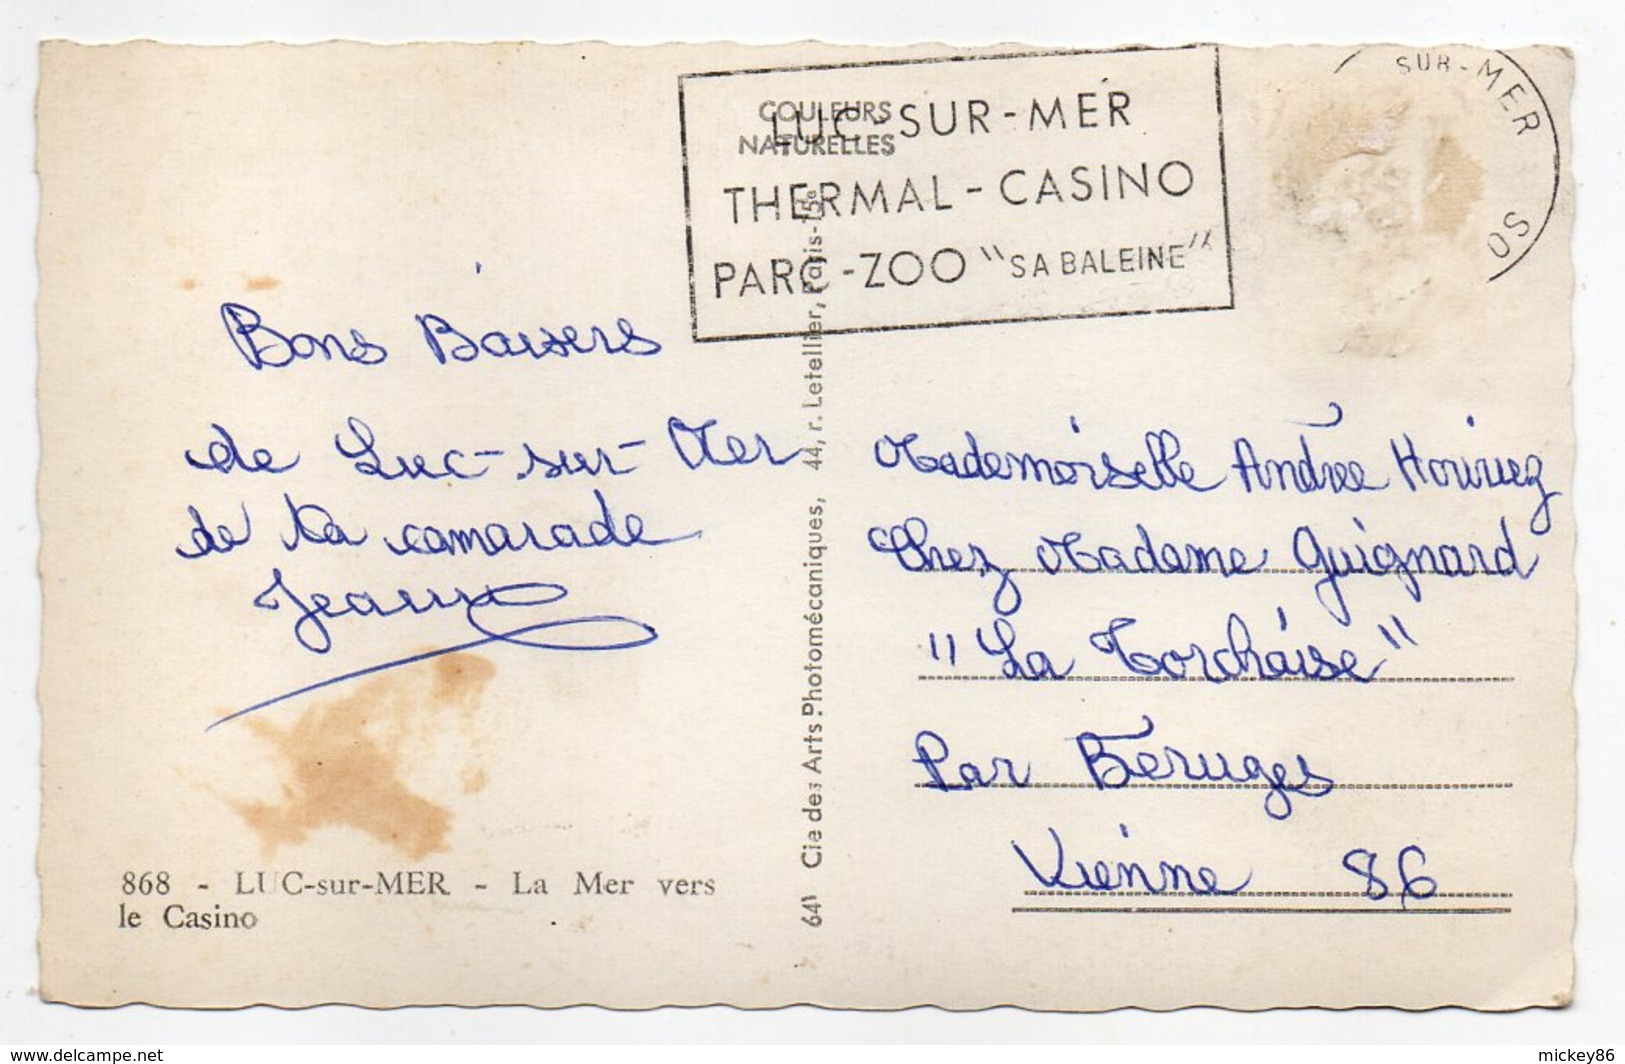 COULEURS
NATURELLES
LUC-SUR-MER
THERMAL-CASINO
PARC-ZOO "SA BALEINE"
SUR-MER
SO
Bons Baisers
de Luc-sur-Mer
de ta camarade
868 - LUC-sur-MER - La Mer vers
le Casino
641 Cie des Arts Photomécaniques, 44, r. Letellier, Paris-15e
Mademoiselle Andrée
Chez Madame Guignard
"La Torchaise"
Par Béruges
Vienne 86
www.delcampe.net
mickey86